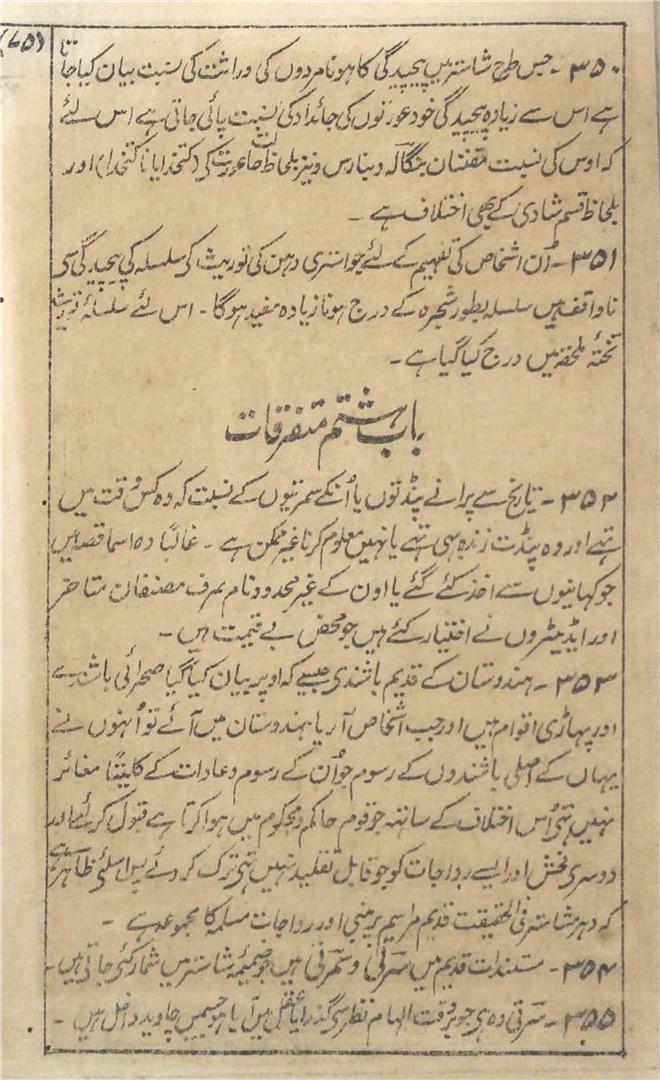 (۷۵)
۳۵۰۔ جس طرح شاستر میں پیچیدگی کا ہونا مردوں کی وراثت کی نسبت بیان کیا جاتا
ہے اس سے زیادہ پیچیدگی خود عورتوں کی جائداد کی نسبت پائی جاتی ہے اس لئے
کہ اوس کی نسبت مقننان بنگالہ و بنارس و نیز بلحاظ حالت عورت کی (کتخدا یا ناکتخدا) اور
بلحاظ قسم شادی کے بھی اختلاف ہے ۔
۳۵۱۔ اُن اشخاص کی تفہیم کے لئے جو استری دہن کی توریث کی سلسلہ کی پیچیدگی سی
ناواقف ہیں سلسلہ بطور شجرہ کے درج ہونا زیادہ مفید ہوگا ۔ اس لئے سلسلۂ توریث
تختۂ ملحقہ میں درج کیا گیا ہے ۔
باب ہشتم متفرقات
۳۵۲۔ تاریخ سے پرانے پنڈتوں یا اُنکے سمرتیوں کے نسبت کہ وہ کس وقت میں
تہے اور وہ پنڈت زندہ بہی تہے یا نہیں معلوم کرنا غیر ممکن ہے ۔ غالبًا وہ اسما قصہ ہیں
جو کہانیوں سے اخذ کئے گئے یا اون کے غیر محدود نام صرف مصنفان متاخر
اور ایڈیٹروں نے اختیار کئے ہیں جو محض بے قیمت ہیں ۔
۳۵۳۔ ہندوستان کے قدیم باشندی جیسے کہ اوپر بیان کیا گیا صحرائی باشندے
اور پہاڑی اقوام ہیں اور جب اشخاص آریا ہندوستان میں آئے تو اُنہوں نے
یہاں کے اصلی باشندوں کے رسوم جو اُن کے رسوم و عادات کے کلیتًا مغائر
نہیں تہی اُس اختلاف کے ساتہہ جو قوم حاکم و محکوم میں ہوا کرتا ہے قبول کرلئے اور
دوسری فحش اور ایسے رواجات کو جو قابل تقلید نہیں تہی ترک کردئے پس اسلئی ظاہر ہے
کہ دہرمشاستر فی الحقیقت قدیم مراسم پر مبنی اور رواجات مسلمہ کا مجموعہ ہے ۔
۳۵۴۔ مستندات قدیم میں سرتی و سمرتی ہیں جو ضمیمۂ شاستر میں شمار کئی جاتی ہیں ۔
۳۵۵۔ سرتی وہ ہی جو بوقت الہام نظر سی گذرا یا عقل میں آیا ہو جسمیں چاروید داخل ہیں ۔